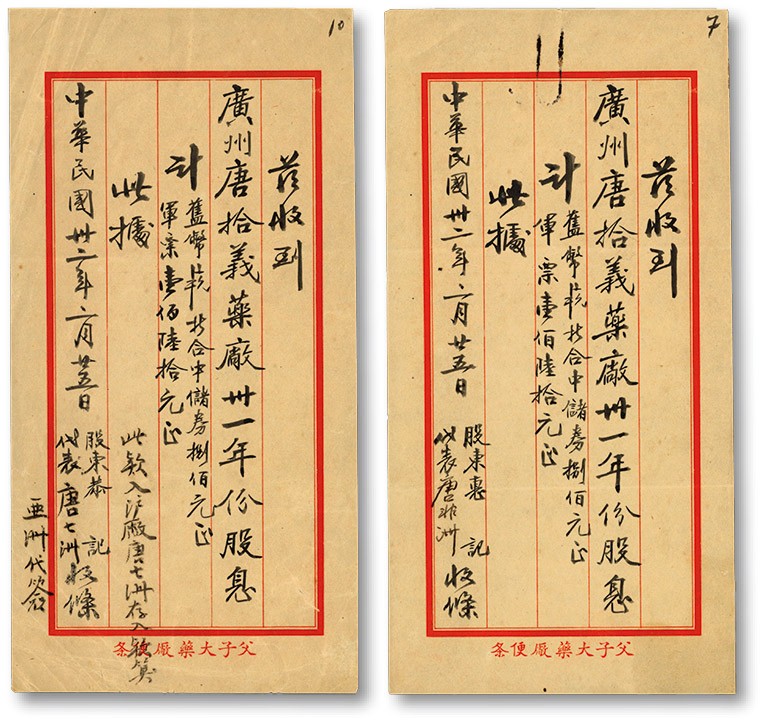 10
茲收到
廣州唐拾義藥廠卅一年份股息
計
舊幣折合中儲券捌佰元正
軍票壹佰陸拾元正
此據
此欵入滬廠唐七洲存入欵算
中華民國卅二年六月廿五日
股東恭記
代表唐七洲收條
亜洲代簽
父子大藥厰便条
7
茲收到
廣州唐拾義藥廠卅一年份股息
計
舊幣折合中儲券捌佰元正
軍票壹佰陸拾元正
此據
中華民國卅二年六月廿五日
股東惠記
代表唐非洲收條
父子大藥厰便条